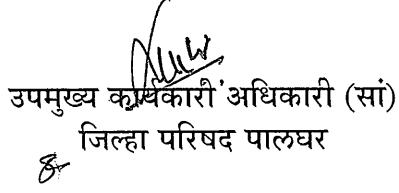 उपमुख्य कार्यकारी अधिकारी (सां)
जिल्हा परिषद पालघर